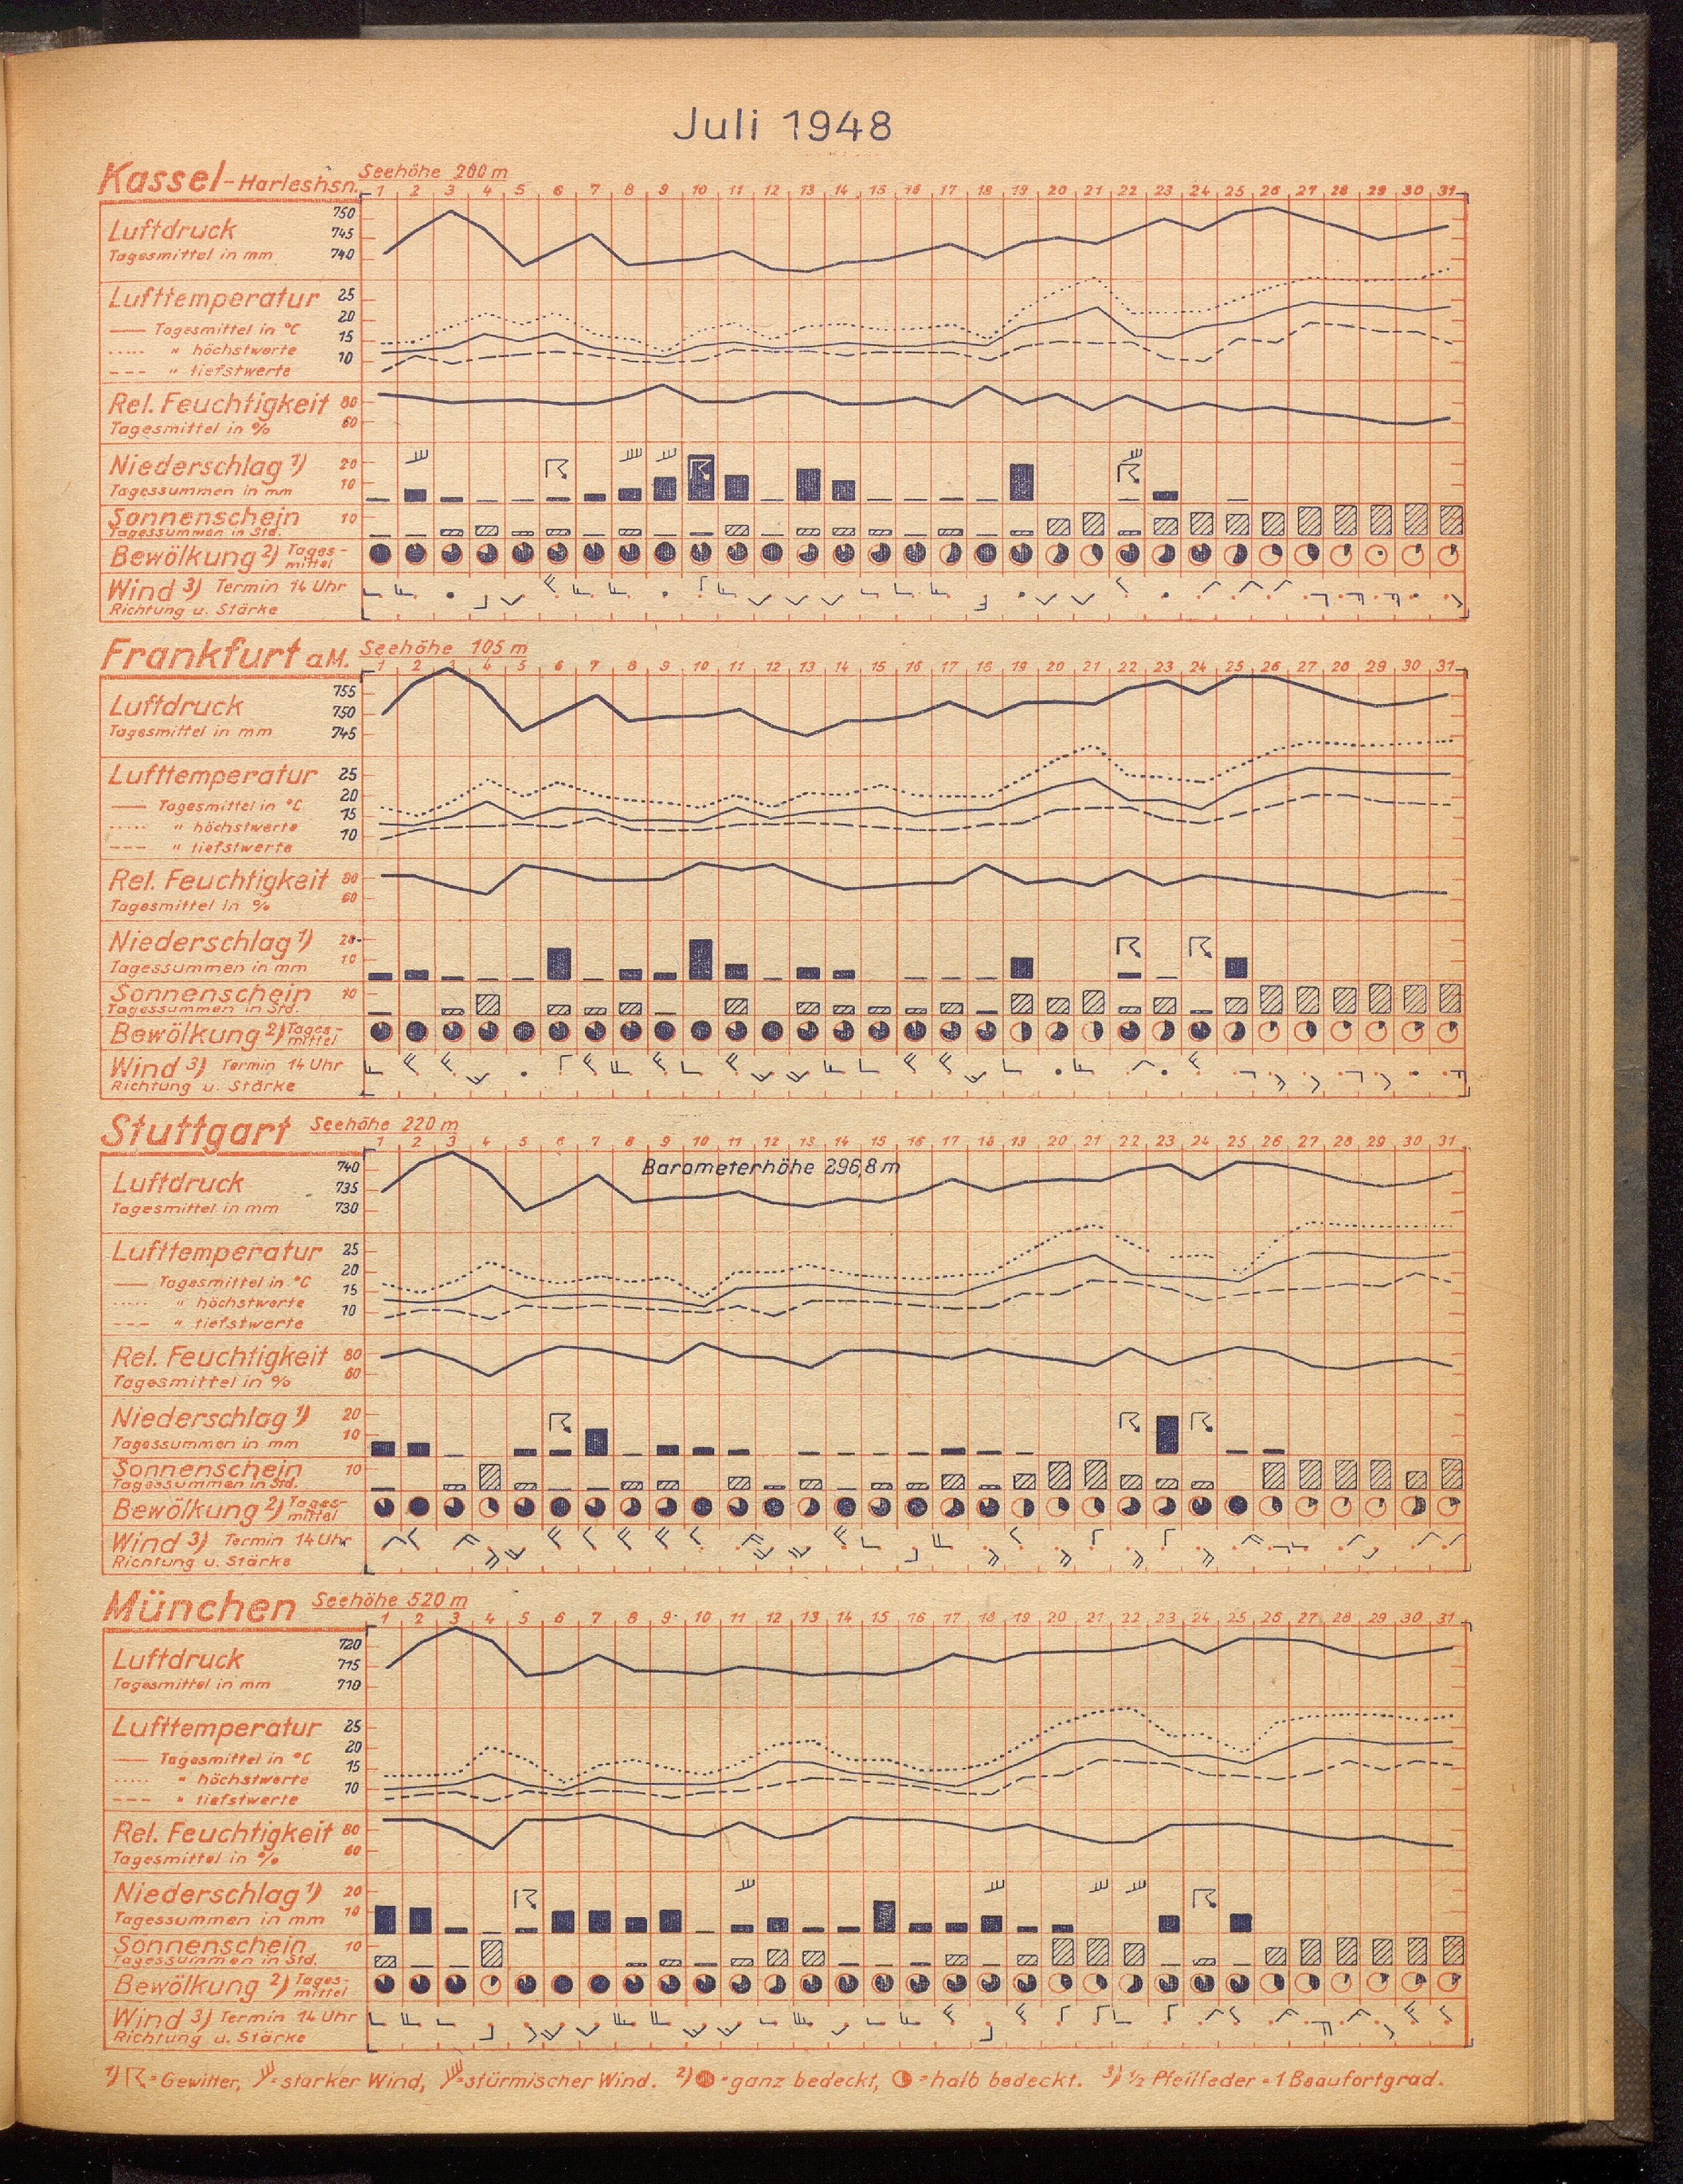 Juli 1948
Kassel-Harleshsn. Seehöhe 200 m
1 2 3 4 5 6 7 8 9 10 11 12 13 14 15 16 17 18 19 20 21 22 23 24 25 26 27 28 29 30 31
Luftdruck 750
745
Tagesmittel in mm 740
Lufttemperatur 25
20
Tagesmittel in °C 15
" höchstwerte 10
" tiefstwerte
Rel. Feuchtigkeit 80
Tagesmittel in % 60
Niederschlag 1) 20
Tagessummen in mm 10
Sonnenschein 10
Tagessummen in Std.
Bewölkung 2) Tages-
mittel
Wind 3) Termin 14 Uhr
Richtung u. Stärke
Frankfurt a.M. Seehöhe 105 m
1 2 3 4 5 6 7 8 9 10 11 12 13 14 15 16 17 18 19 20 21 22 23 24 25 26 27 28 29 30 31
755
Luftdruck 750
Tagesmittel in mm 745
Lufttemperatur 25
20
Tagesmittel in °C 15
" höchstwerte 10
" tiefstwerte
Rel. Feuchtigkeit 80
Tagesmittel in % 60
Niederschlag 1) 20
Tagessummen in mm 10
Sonnenschein 10
Tagessummen in Std.
Bewölkung 2) Tages-
mittel
Wind 3) Termin 14 Uhr
Richtung u. Stärke
Stuttgart Seehöhe 220 m
1 2 3 4 5 6 7 8 9 10 11 12 13 14 15 16 17 18 19 20 21 22 23 24 25 26 27 28 29 30 31
740 Barometerhöhe 296,8 m
Luftdruck 735
Tagesmittel in mm 730
Lufttemperatur 25
20
Tagesmittel in °C 15
" höchstwerte 10
" tiefstwerte
Rel. Feuchtigkeit 80
Tagesmittel in % 60
Niederschlag 1) 20
Tagessummen in mm 10
Sonnenschein 10
Tagessummen in Std.
Bewölkung 2) Tages-
mittel
Wind 3) Termin 14 Uhr
Richtung u. Stärke
München Seehöhe 520 m
1 2 3 4 5 6 7 8 9 10 11 12 13 14 15 16 17 18 19 20 21 22 23 24 25 26 27 28 29 30 31
720
Luftdruck 715
Tagesmittel in mm 710
Lufttemperatur 25
20
Tagesmittel in °C 15
" höchstwerte 10
" tiefstwerte
Rel. Feuchtigkeit 80
Tagesmittel in % 60
Niederschlag 1) 20
Tagessummen in mm 10
Sonnenschein 10
Tagessummen in Std.
Bewölkung 2) Tages-
mittel
Wind 3) Termin 14 Uhr
Richtung u. Stärke
1) = Gewitter, = starker Wind, = stürmischer Wind. 2) = ganz bedeckt, = halb bedeckt. 3) 1/2 Pfeilfeder = 1 Beaufortgrad.